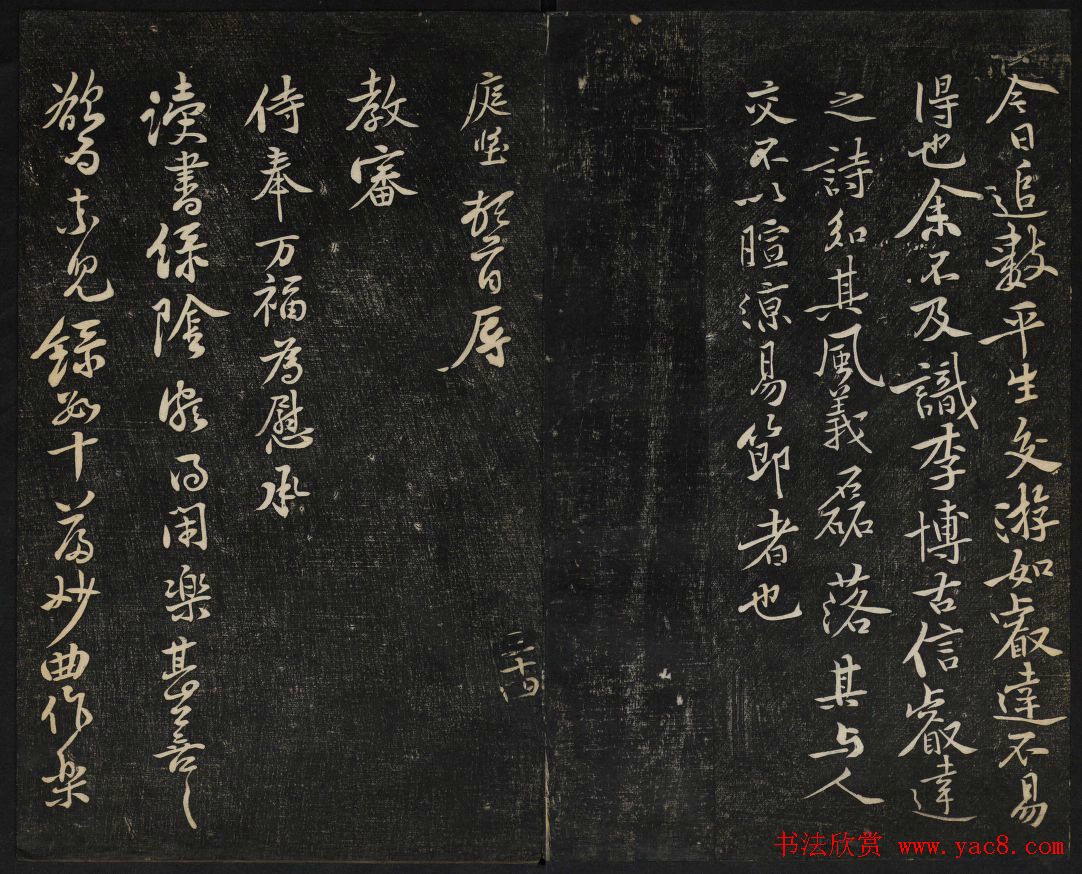 今日追數平生交游如叡達不易
得也余不及識李博古信叡達
之詩知其風義磊落其与人
交不以暄涼易節者也
庭堅頓首辱
教審
侍奉万福為慰承
读書保陰能得閑樂甚善〻
欲为未見録數十篇妙曲作樂
二十四
书法欣赏 www.yac8.com